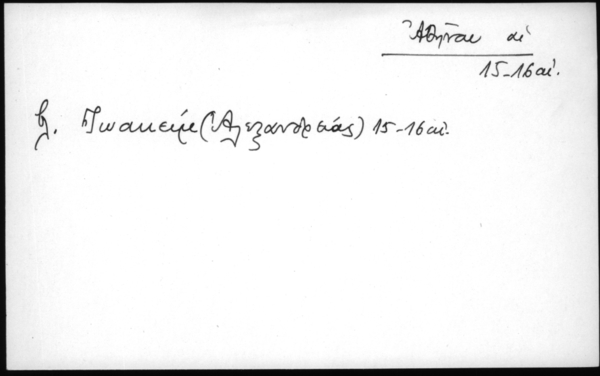 Ἀθῆναι αἱ
15-16 αἰ.
βλ. Ἰωακείμ (Ἀλεξανδρείας) 15-16 αἰ.